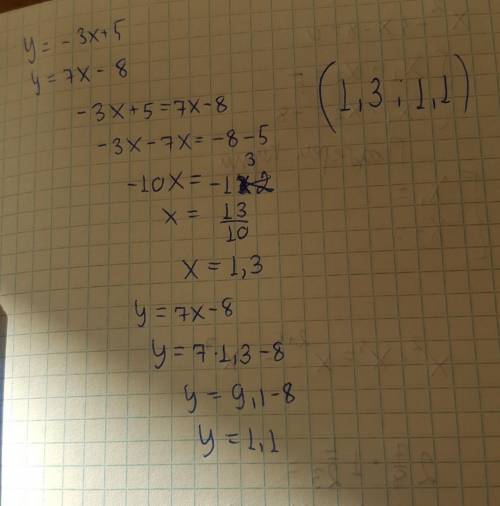 y = -3x+5
y = 7x-8
-3x+5=7x-8
-3x-7x=-8-5
-10x = -13
x = 13/10
x = 1,3
y = 7x-8
y = 7·1,3-8
y = 9,1-8
y = 1,1
(1,3 ; 1,1)